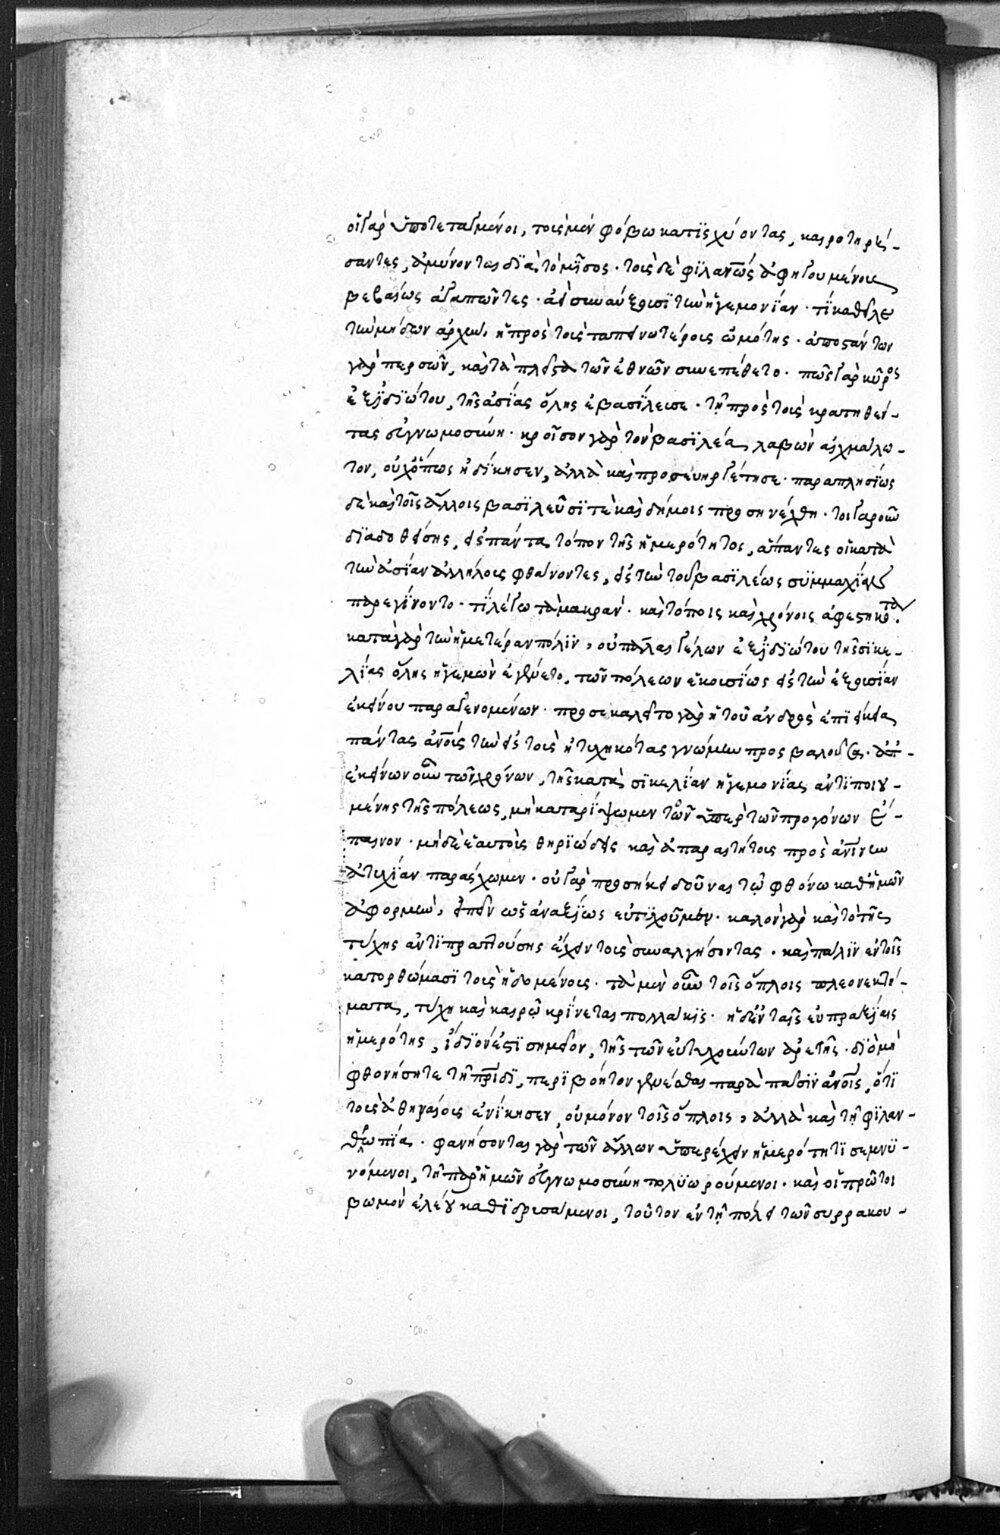 οἱ γὰρ ὑποτεταγμένοι, τοὺς μὲν φόβω κατισχύοντας, καιροτηρή-
σαντες, ἀμύνονται διὰ τὸ μῖσος· τοὺς δὲ φιλανως ἀφηγουμένους
βεβαίως ἀγαπῶντες· ἀεὶ συναύξουσι τὴν ἡγεμονίαν· τί καθεῖλε
τὴν μήδων ἀρχὴν, ἡ πρὸς τοὺς ταπεινωτέροις ὠμότης· ἀποστάντων
γὰρ περσῶν, καὶ τὰ πλεῖστα τῶν ἐθνῶν συνεπέθετο· πῶς γὰρ κῦρος
ἐξ ἰδιώτου, τῆς ἀσίας ὅλης ἐβασίλευσε· τῇ πρὸς τοὺς κρατηθέν-
τας εὐγνωμοσύνη· κροῖσον γὰρ τὸν βασιλέα, λαβὼν αἰχμάλω-
τον, οὐχ ὅπως ἠδίκησεν, ἀλλὰ καὶ προσευηργέτησε· παραπλησίως
δὲ καὶ τοῖς ἄλλοις βασιλεῦσί τε καὶ δήμοις προσηνέχθη· τοιγαροῦν
διαδοθείσης, εἰς πάντα τόπον τῆς ἡμερότητος, ἅπαντες οἱ κατὰ
τὴν ἀσίαν ἀλλήλους φθάνοντες, εἰς τὴν τοῦ βασιλέως συμμαχίαν
παρεγίνοντο· τί λέγω τὰ μακρὰν· καὶ τόποις καὶ χρόνοις ἀφεστηκότα·
κατὰ γὰρ τὴν ἡμετέραν πόλιν, οὐ πάλαι γέλων ἐξ ἰδιώτου τῆς σικε-
λίας ὅλης ἡγεμὼν ἐγένετο, τῶν πόλεων ἑκουσίως εἰς τὴν ἐξουσίαν
ἐκείνου παραγενομένων· προσεκαλεῖτο γὰρ ἡ τοῦ ἀνδρὸς ἐπιείκεια
πάντας ἀνους τὴν εἰς τοὺς ἠτυχηκότας γνώμην προσβαλοῦσα· ἀπ-
ἐκείνων οὖν τῶν χρόνων, τῆς κατὰ σικελίαν ἡγεμονίας ἀντιποιου-
μένης τῆς πόλεως, μὴ καταρίψωμεν τὸν ὑπὲρ τῶν προγόνων ἔ-
παινον· μηδὲ ἑαυτοὺς θηριώδεις καὶ ἀπαραιτήτους πρὸς ἀνινην
ἀτυχίαν παράσχωμεν· οὐ γὰρ προσήκει δοῦναι τῷ φθόνω καθ ἡμῶν
ἀφορμὴν, εἰπεῖν ὡς ἀναξίως εὐτυχοῦμεν· καλὸν γὰρ καὶ τὸ τῆς
τύχης ἀντιπραττούσης ἔχειν τοὺς συναλγήσοντας· καὶ πάλιν ἐν τοῖς
κατορθώμασι τοὺς ἡδομένους· τὰ μὲν οὖν τοῖς ὅπλοις πλεονεκτή-
ματα, τύχῃ καὶ καιρῷ κρίνεται πολλάκις· ἡ δ' ἐν ταῖς εὐπραξίαις
ἡμερότης, ἴδιόν ἐστι σημεῖον, τῆς τῶν εὐτυχούντων ἀρετῆς· διὸ μὴ
φθονήσητε τῇ πριδι, περιβόητον γενέσθαι παρὰ πᾶσιν ἀνοις, ὅτι
τοὺς ἀθηναίους ἐνίκησεν, οὐ μόνον τοῖς ὅπλοις, ἀλλὰ καὶ τῇ φιλαν-
θρωπία· φανήσονται γὰρ τῶν ἄλλων ὑπερέχειν ἡμερότητι σεμνυ-
νόμενοι, τῇ παρ' ἡμῶν εὐγνωμοσύνη πολυωρούμενοι· καὶ οἱ πρῶτοι
βωμὸν ἐλέου καθιδρυσάμενοι, τοῦτον ἐν τῇ πόλει τῶν συρρακου-